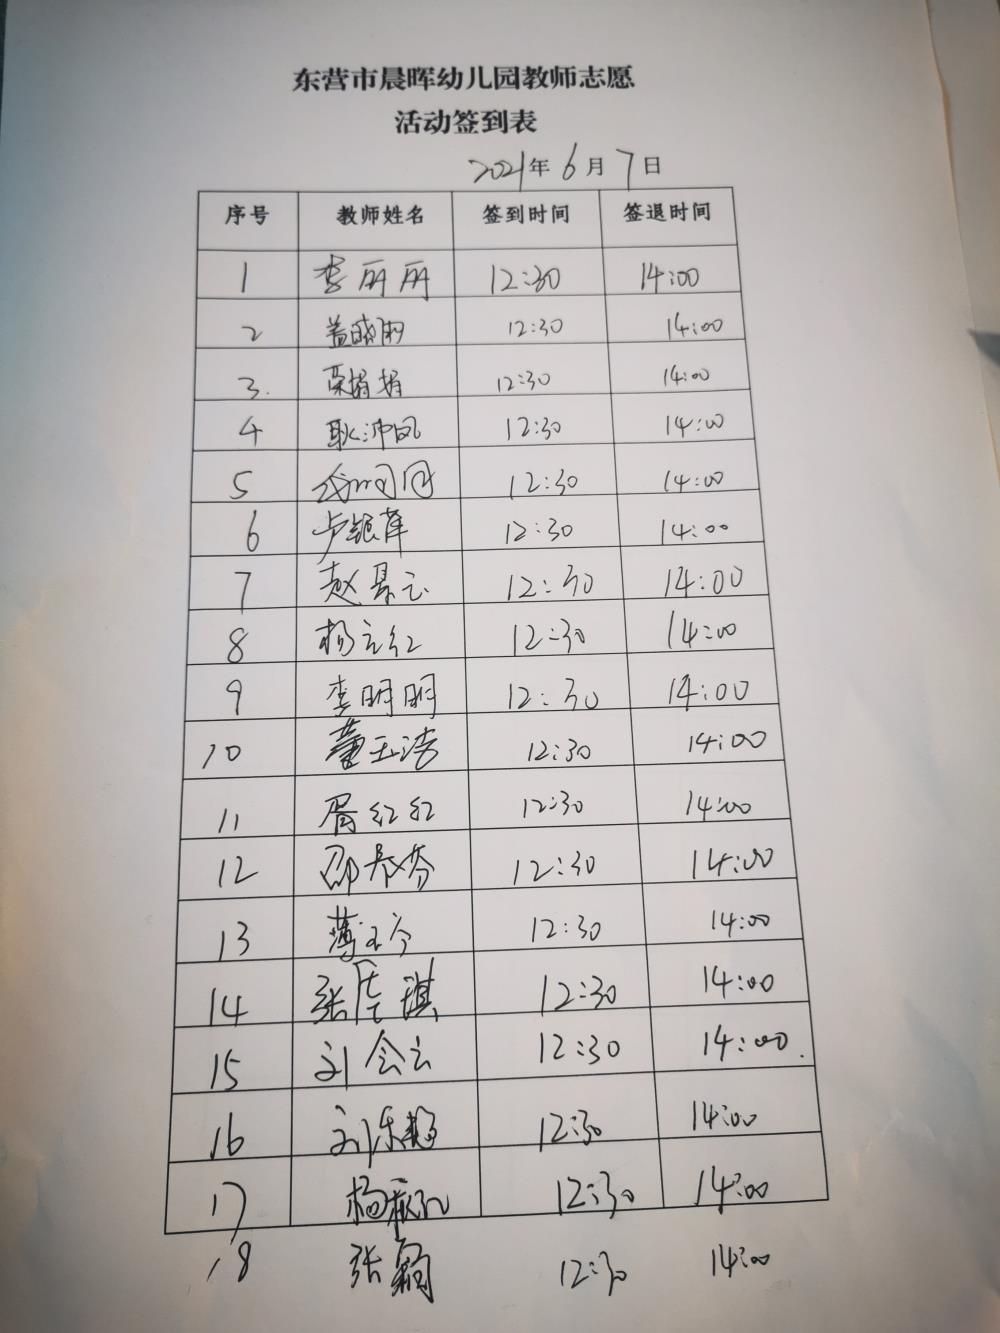 东营市晨晖幼儿园教师志愿
活动签到表
2021年6月7日
序号 教师姓名 签到时间 签退时间
1 李丽丽 12:30 14:00
2 盖晓雨 12:30 14:00
3. 栾娟娟 12:30 14:00
4 耿沛凤 12:30 14:00
5 12:30 14:00
6 卢银萍 12:30 14:00
7 赵景云 12:30 14:00
8 杨立红 12:30 14:00
9 李明明 12:30 14:00
10 董玉洁 12:30 14:00
11 胥红红 12:30 14:00
12 邵春芬 12:30 14:00
13 薄玉今 12:30 14:00
14 12:30 14:00
15 刘会云 12:30 14:00.
16 12:30 14:00
17 12:30 14:00
18 12:30 14:00